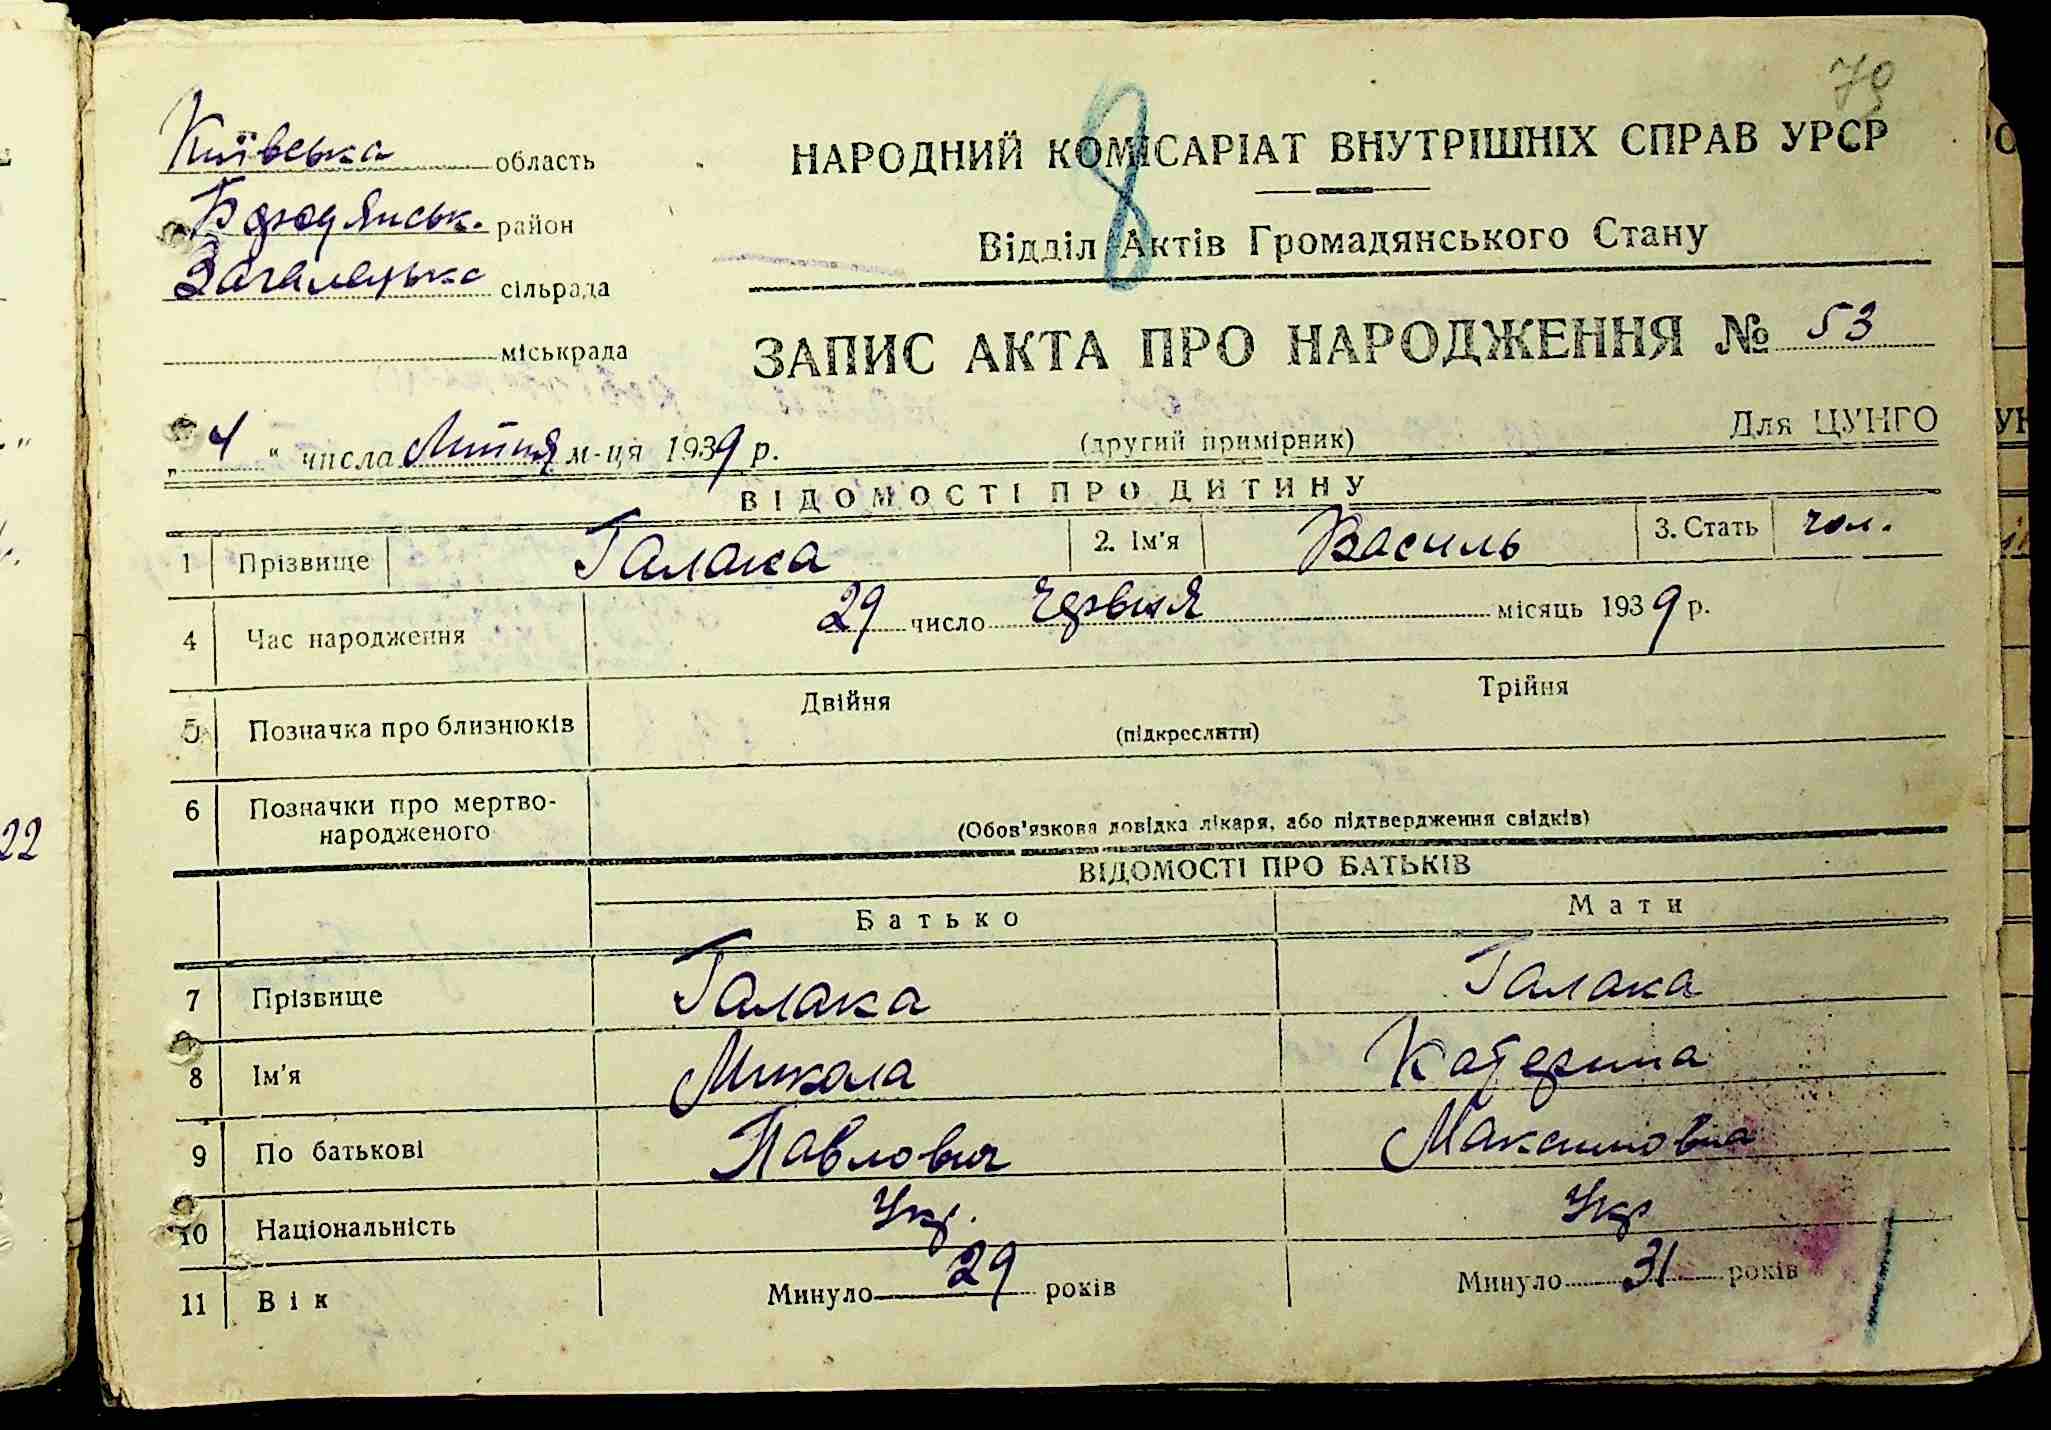 79
Київська область
НАРОДНИЙ КОМІСАРІАТ ВНУТРІШНІХ СПРАВ УРСР
8
Бородянськ. район
Відділ Актів Громадянського Стану
Загальцька сільрада
міськрада
ЗАПИС АКТА ПРО НАРОДЖЕННЯ № 53
„ 4 “ числа Липня м-ця 1939 р.
(другий примірник)
Для ЦУНГО
ВІДОМОСТІ ПРО ДИТИНУ
1 Прізвище Галака 2. Ім'я Василь 3. Стать чол.
4 Час народження 29 число Червня місяць 1939 р.
5 Позначка про близнюків Двійня Трійня
(підкреслити)
6 Позначки про мертво-
народженого
(Обов'язкова довідка лікаря, або підтвердження свідків)
ВІДОМОСТІ ПРО БАТЬКІВ
Батько Мати
7 Прізвище Галака Галака
8 Ім'я Микола Катерина
9 По батькові Павлович Максимовна
10 Національність Укр. Укр
11 Вік Минуло 29 років Минуло 31 років
22